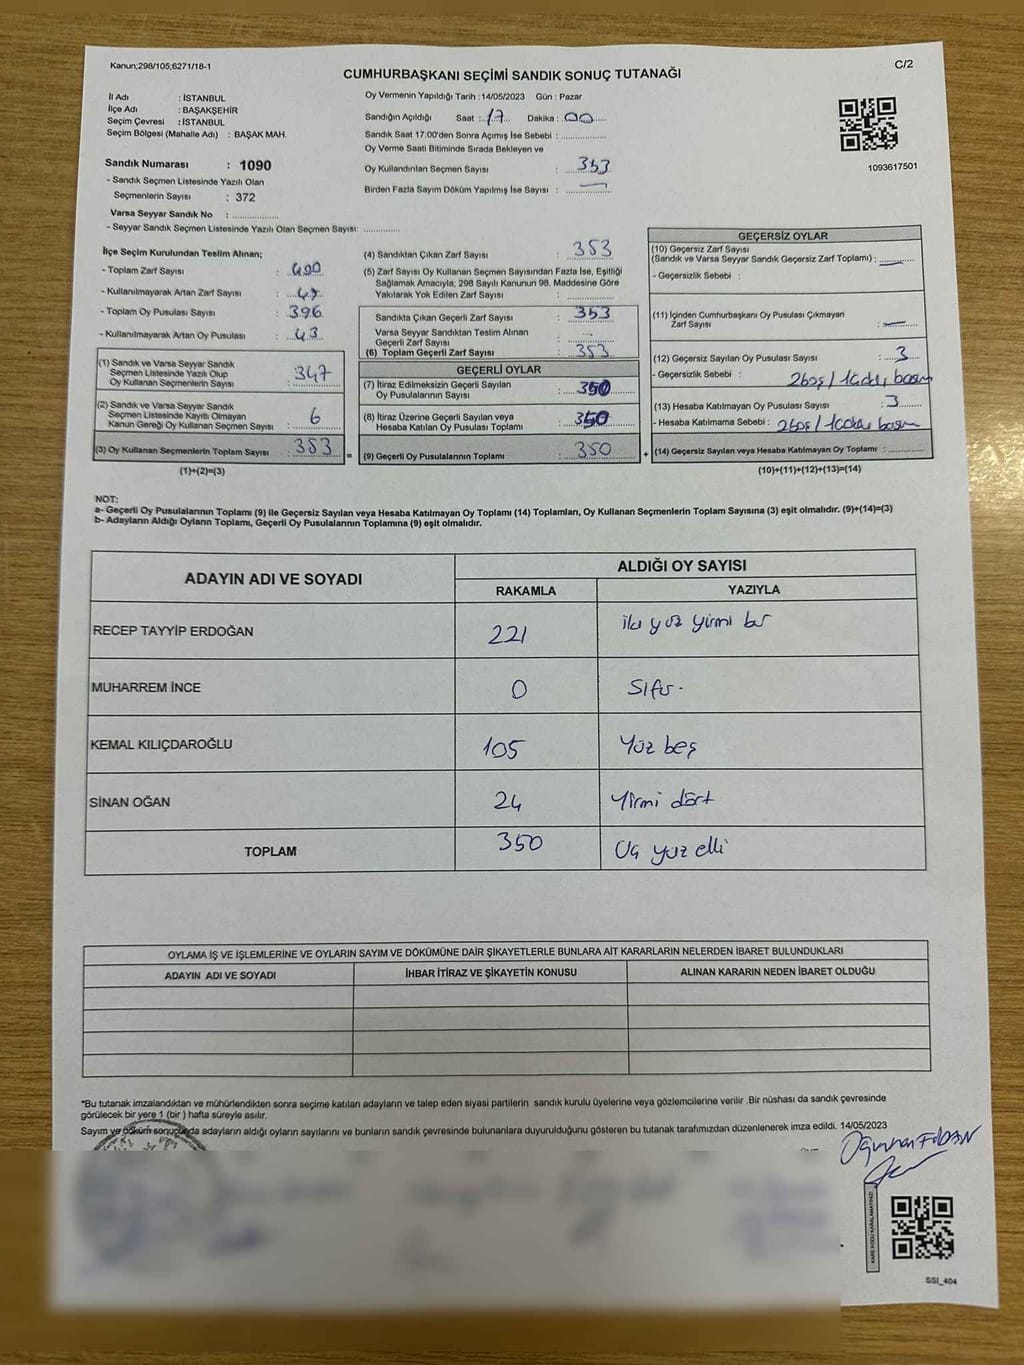 Kanun;298/105;6271/18-1
C/2
CUMHURBAŞKANI SEÇİMİ SANDIK SONUÇ TUTANAĞI
İl Adı : İSTANBUL
İlçe Adı : BAŞAKŞEHİR
Seçim Çevresi : İSTANBUL
Seçim Bölgesi (Mahalle Adı) : BAŞAK MAH.
Sandık Numarası : 1090
- Sandık Seçmen Listesinde Yazılı Olan
Seçmenlerin Sayısı : 372
Varsa Seyyar Sandık No :
- Seyyar Sandık Seçmen Listesinde Yazılı Olan Seçmen Sayısı:
Oy Vermenin Yapıldığı Tarih : 14/05/2023 Gün : Pazar
Sandığın Açıldığı Saat : 17 Dakika : 00
Sandık Saat 17.00'den Sonra Açımış İse Sebebi :
Oy Verme Saati Bitiminde Sırada Bekleyen ve
Oy Kullandırılan Seçmen Sayısı : 353
Birden Fazla Sayım Döküm Yapılmış İse Sayısı : —
1093617501
İlçe Seçim Kurulundan Teslim Alınan;
- Toplam Zarf Sayısı : 400
- Kullanılmayarak Artan Zarf Sayısı : 47
- Toplam Oy Pusulası Sayısı : 396
- Kullanılmayarak Artan Oy Pusulası : 43
(1) Sandık ve Varsa Seyyar Sandık
Seçmen Listesinde Yazılı Olup
Oy Kullanan Seçmenlerin Sayısı : 347
(2) Sandık ve Varsa Seyyar Sandık
Seçmen Listesinde Kayıtlı Olmayan
Kanun Gereği Oy Kullanan Seçmen Sayısı : 6
(3) Oy Kullanan Seçmenlerin Toplam Sayısı : 353
(1)+(2)=(3)
(4) Sandıktan Çıkan Zarf Sayısı : 353
(5) Zarf Sayısı Oy Kullanan Seçmen Sayısından Fazla İse, Eşitliği
Sağlamak Amacıyla; 298 Sayılı Kanunun 98. Maddesine Göre
Yakılarak Yok Edilen Zarf Sayısı :
Sandıkta Çıkan Geçerli Zarf Sayısı : 353
Varsa Seyyar Sandıktan Teslim Alınan
Geçerli Zarf Sayısı :
(6) Toplam Geçerli Zarf Sayısı : 353
GEÇERLİ OYLAR
(7) İtiraz Edilmeksizin Geçerli Sayılan
Oy Pusulasının Sayısı : 350
(8) İtiraz Üzerine Geçerli Sayılan veya
Hesaba Katılan Oy Pusulası Toplamı : 350
(9) Geçerli Oy Pusulalarının Toplamı : 350
=
+
GEÇERSİZ OYLAR
(10) Geçersiz Zarf Sayısı
(Sandık ve Varsa Seyyar Sandık Geçersiz Zarf Toplamı) : —
- Geçersizlik Sebebi :
(11) İçinden Cumhurbaşkanı Oy Pusulası Çıkmayan
Zarf Sayısı : —
(12) Geçersiz Sayılan Oy Pusulası Sayısı : 3
- Geçersizlik Sebebi : 2boş/
(13) Hesaba Katılmayan Oy Pusulası Sayısı : 3
- Hesaba Katılmama Sebebi : 2boş/
(14) Geçersiz Sayılan veya Hesaba Katılmayan Oy Toplamı :
(10)+(11)+(12)+(13)=(14)
NOT:
a- Geçerli Oy Pusulalarının Toplamı (9) ile Geçersiz Sayılan veya Hesaba Katılmayan Oy Toplamı (14) Toplamları, Oy Kullanan Seçmenlerin Toplam Sayısına (3) eşit olmalıdır. (9)+(14)=(3)
b- Adayların Aldığı Oyların Toplamı, Geçerli Oy Pusulalarının Toplamına (9) eşit olmalıdır.
ADAYIN ADI VE SOYADI
ALDIĞI OY SAYISI
RAKAMLA YAZIYLA
RECEP TAYYİP ERDOĞAN 221 iki yüz yirmi bir
MUHARREM İNCE 0 Sıfır.
KEMAL KILIÇDAROĞLU 105 Yüz beş
SİNAN OĞAN 24 Yirmi dört
TOPLAM 350 Üç yüz elli
OYLAMA İŞ VE İŞLEMLERİNE VE OYLARIN SAYIM VE DÖKÜMÜNE DAİR ŞİKAYETLERLE BUNLARA AİT KARARLARIN NELERDEN İBARET BULUNDUKLARI
ADAYIN ADI VE SOYADI İHBAR İTİRAZ VE ŞİKAYETİN KONUSU ALINAN KARARIN NEDEN İBARET OLDUĞU
*Bu tutanak imzalandıktan ve mühürlendikten sonra seçime katılan adayların ve talep eden siyasi partilerin sandık kurulu üyelerine veya gözlemcilerine verilir .Bir nüshası da sandık çevresinde
görülecek bir yere 1 (bir ) hafta süreyle asılır.
Sayım ve döküm sonucunda adayların aldığı oyların sayılarını ve bunların sandık çevresinde bulunanlara duyurulduğunu gösteren bu tutanak tarafımızdan düzenlenerek imza edildi. 14/05/2023
KARE KODU KARALAMAYINIZ!
SSI_404